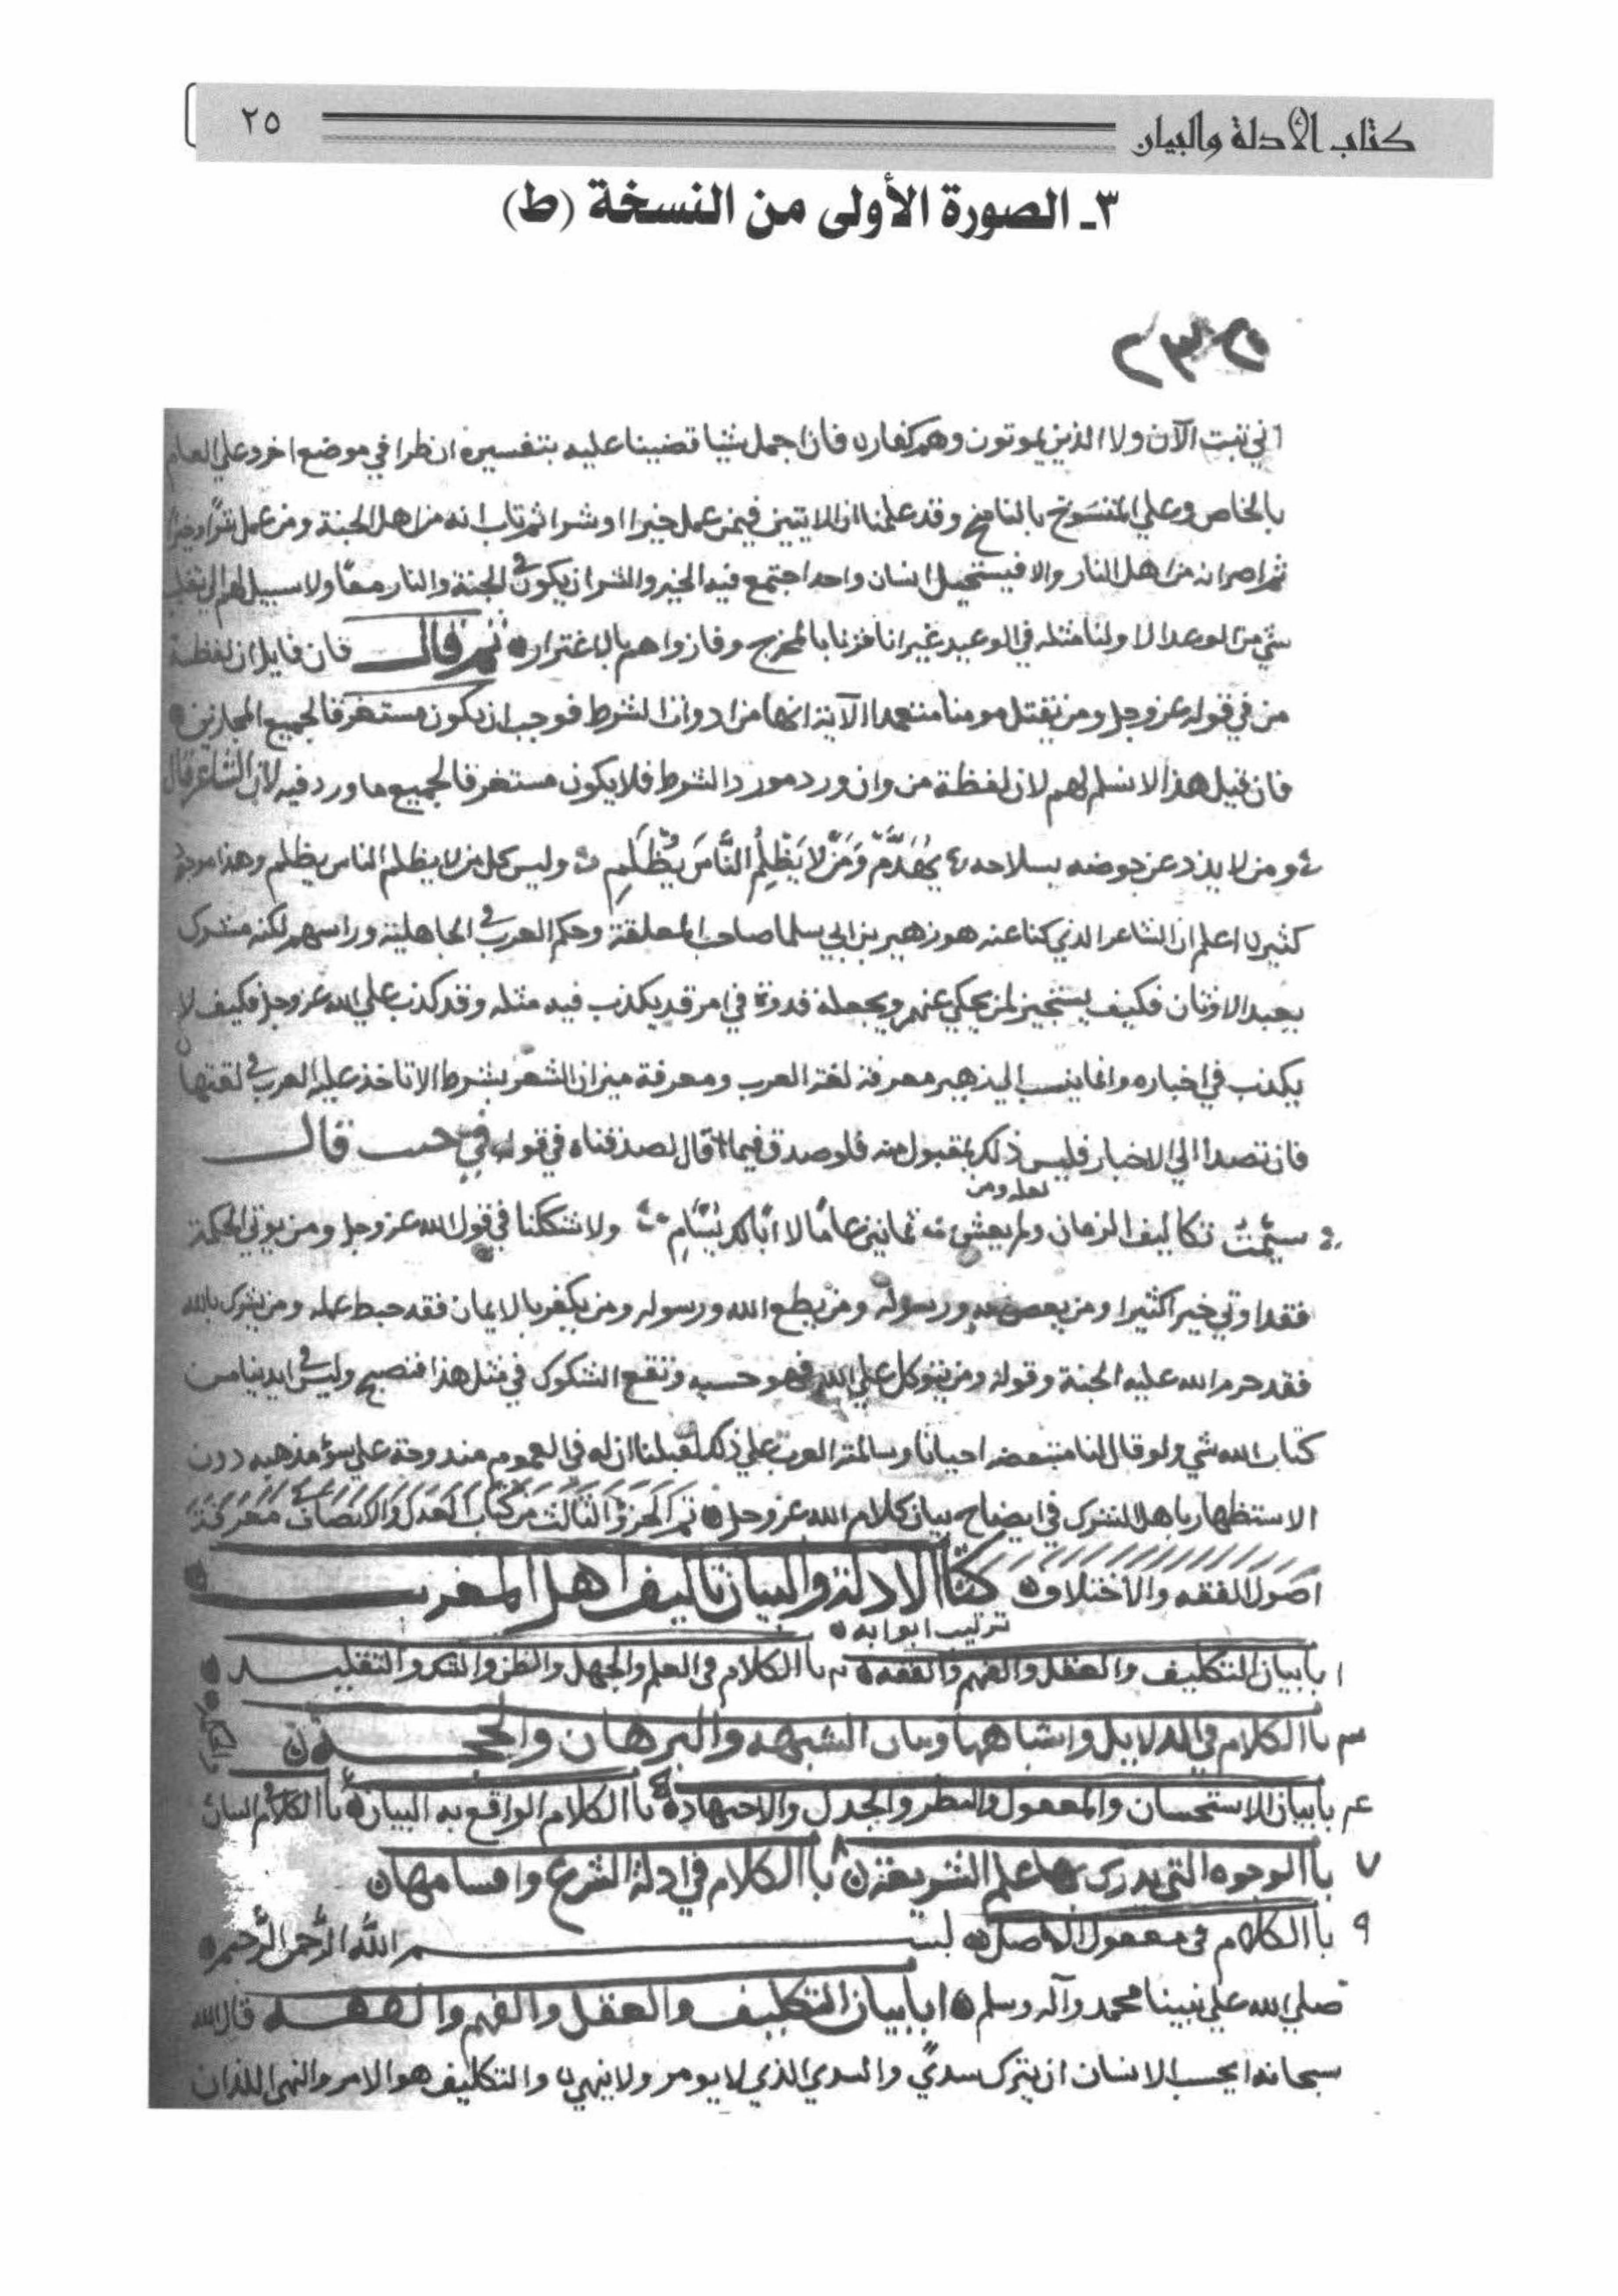 كتاب الأدلة والبيان
٢٥
٣ـ الصورة الأولى من النسخة (ط)
٢٣٥
اني تبت الآن ولا الذين يموتون وهم كفار فاذا اجمل شيا قضينا عليه بتفسيره ان طرا في موضع اخر وعلي العام
بالخاص وعلي المنسوخ بالناسخ وقد علمنا ان الايتين فيمن عمل خيرا او شرا ثم تاب انه من اهل الجنة ومن عمل شرا وخيرا
ثم اصر انه من اهل النار والا فيستحيل انسان واحد اجتمع فيه الخير والشر ان يكون في الجنة والنار معا ولا سبيل لهم الي
شي من الوعد الا ولنا مثله في الوعيد غير انا فزنا بالمخرج وفازوا هم بالاغترار ثم قال فان قايل ان لفظة
من في قوله عز وجل ومن يقتل مومنا متعمدا الآية انها من ادوات الشرط فوجب ان يكون مستغرقا لجميع المجازين
فان قيل هذا لا نسلم لهم لان لفظة من وان ورد مورد الشرط فلا يكون مستغرقا لجميع ما ورد فيه لان الشاعر قال
ومن لا يذد عن حوضه بسلاحه يُهَدَّمْ وَمَنْ لا يَظْلِمُ النَّاسَ يُظْلَمِ وليس كل من لا يظلم الناس يظلم وهذا موجود
كثير اعلم ان الشاعر الذي كنا عنه هو زهير بن ابي سلما صاحب المعلقة وحكم العرب في الجاهلية وراسهم لكنه مشرك
يعبد الاوثان فكيف يستجيز لمن يحكي عنهم ويجعله قدوة في امر قد يكذب فيه مثله وقد كذب علي الله عز وجل فكيف لا
يكذب في اخباره وانما ينسب الي زهير معرفة لغة العرب ومعرفة ميزان الشعر بشرط الا تاخذ عليه العرب في لغتها
فان تصدا الي الاخبار فليس ذلك بمقبول منه فلو صدق فيما قال لصدقناه في قوله حيث قال
لعله ومن
سئمت تكاليف الزمان ولم يعش ثمانين عاما لا ابا لك يسام ولا شككنا في قول الله عز وجل ومن يوتي الحكمة
فقد اوتي خيرا كثيرا ومن يعص الله ورسوله ومن يطع الله ورسوله ومن يكفر بالايمان فقد حبط عمله ومن يشرك بالله
فقد حرم الله عليه الجنة وقوله ومن يتوكل علي الله فهو حسبه وتقع الشكوك في مثل هذا فنصبح وليس في ايدينا من
كتاب الله شي ولو قال لنا متبعضه احيانا وسالمته العرب علي ذلك لقبلنا ان له في العموم مندوحة علي سؤ مذهبه دون
الاستظهار باهل الشرك في ايضاح بيان كلام الله عز وجل تم الجزؤ الثالث من كتاب العدل والانصاف معرفة
اصول الفقه والاختلاف كتاب الادلة والبيان تاليف اهل المغرب
ترتيب ابوابه
١ باب بيان التكليف والعقل والفهم والفقه ٢ باب الكلام في العلم والجهل والظن والشك والتقليد
٣ باب الكلام في الدلايل واشباهها وبيان الشبهه والبرهان والحجة
٤ باب بيان الاستحسان والمعقول والنظر والجدل والاجتهاد ٥ باب الكلام الواقع به البيان ٦ باب الكلام
٧ باب الوجوه التي يدرك بها علم الشريعة ٨ باب الكلام في ادلة الشرع واقسامها
٩ باب الكلام في معقول الاصل بسم الله الرحمن الرحيم
صلي الله علي نبينا محمد وآله وسلم ١ باب بيان التكليف والعقل والفهم والفقه قال الله
سبحانه ايحسب الانسان ان يترك سدي والسدي الذي لا يومر ولا ينهي والتكليف هو الامر والنهي اللذان